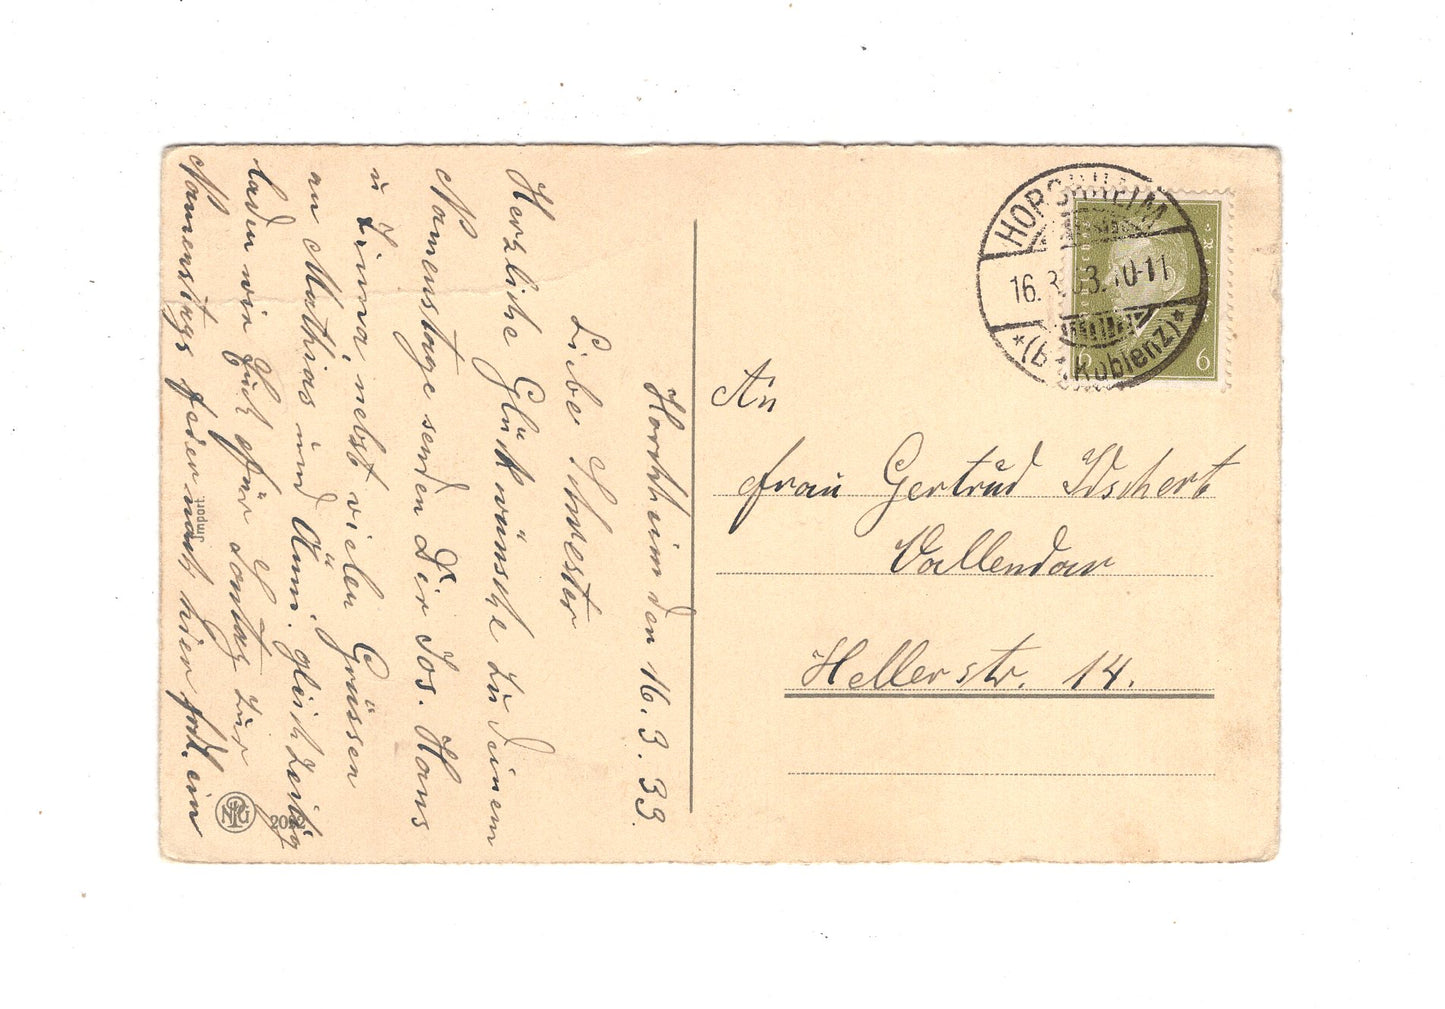 Horchheim den 16.3.33.
Liebe Schwester
Herzliche Glückwünsche zu deinem
Namenstage senden Dir Jos. Hans
u nebst vielen Grüssen
an Mathias und Änni. gleichzeitig
laden wir Euch für Sontag zur
Namenstags feier nach hier frdl. ein
An
Frau Gertrud
Vallendar
Hellerstr. 14.
HORCHHEIM
16.3.33.10-11
*(Bz. Koblenz)*
6 6
Import.
NPG
2092